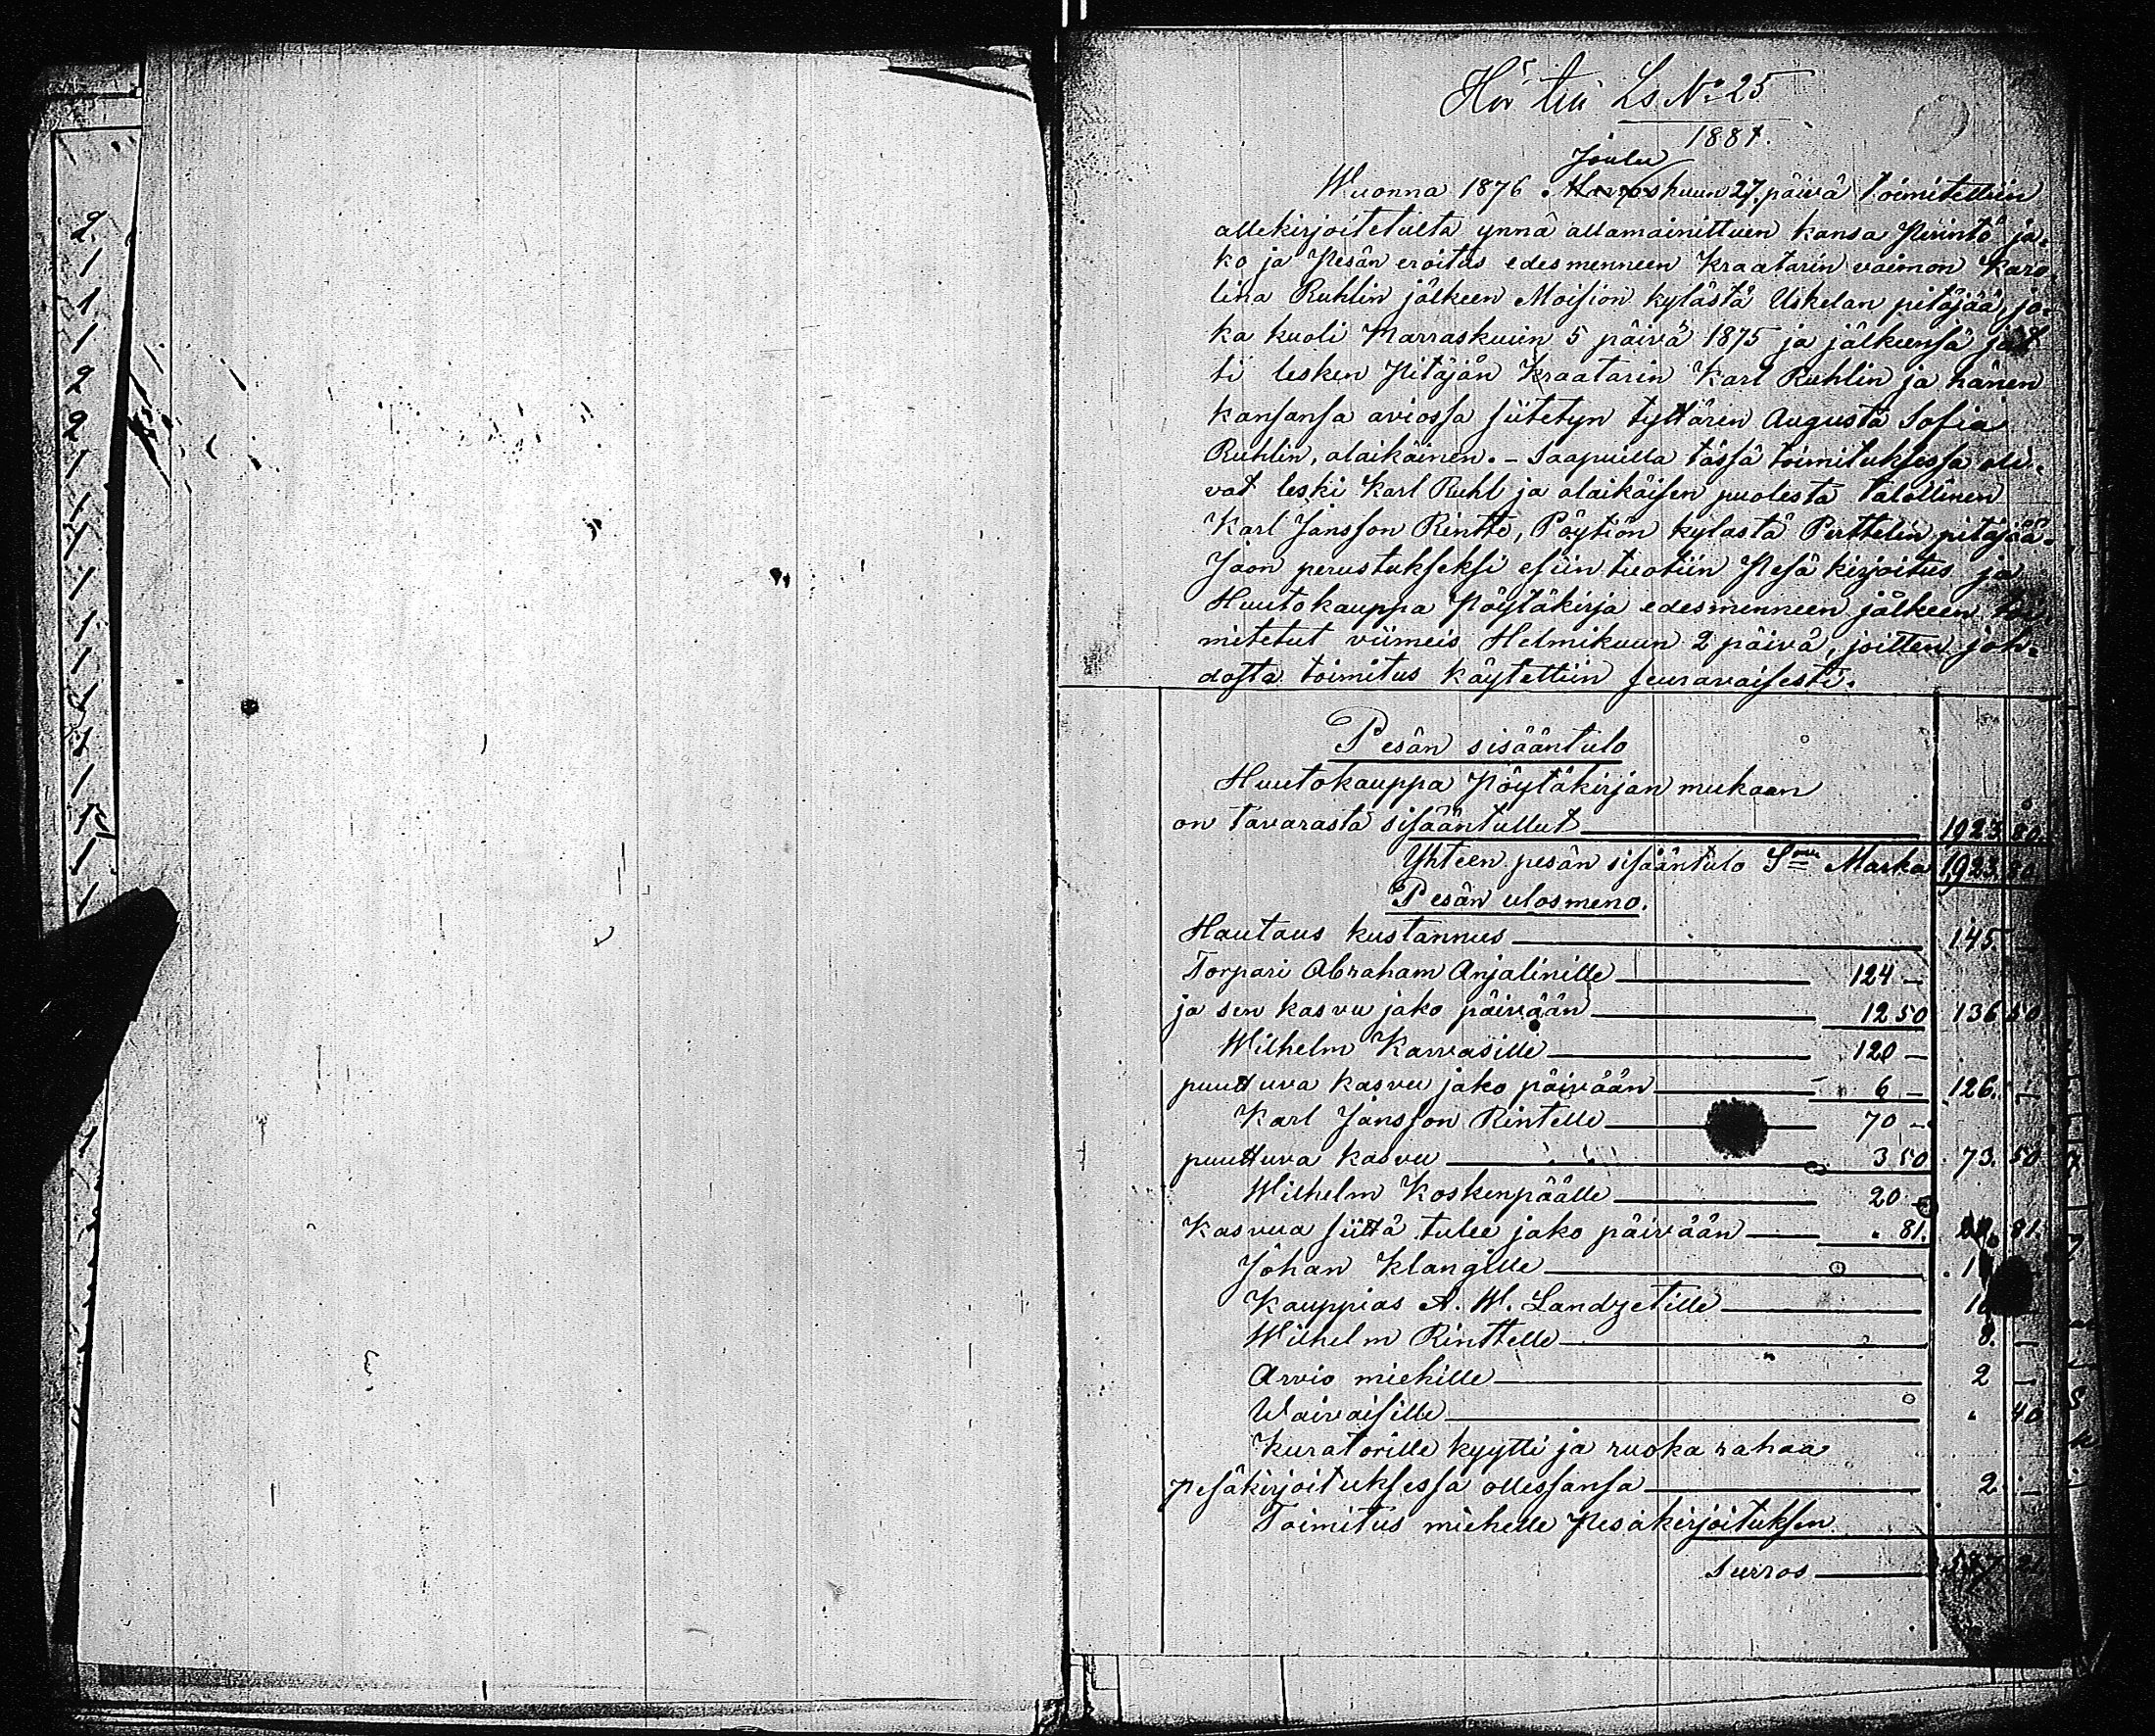 Hör till Ls No 25
1881.
Joulu
Wuonna 1876 Marraskuun 27. päivä toimitettiin
allekirjoitetulta ynnä allamainittuen kansa Perintö ja-
ko ja Pesän eroitus edesmenneen Kraatarin vaimon Karo-
lina Ruhlin jälkeen Moision kylästä Uskelan pitäjää, jo-
ka kuoli Marraskuun 5 päivä 1875 ja jälkeensä jät
ti lesken Pitäjän Kraatarin Karl Ruhlin ja hänen
kansansa aviossa siitetyn tyttären Augusta Sofia
Ruhlin, alaikäinen. - Saapuilla tässä toimituksessa oli-
vat leski Karl Ruhl ja alaikäisen puolesta talollinen
Karl Jansson Rintte, Pöytiön kylästä Perttelin pitäjää.
Jaon perustukseksi esiin tuotiin Pesä kirjoitus ja
Huutokauppa Pöytäkirja edesmenneen jälkeen toi-
mitetut viimeis Helmikuun 2 päivä, joitten joh-
dosta toimitus käytettiin seuravaisesti.
Pesän sisääntulo
Huutokauppa Pöytäkirjan mukaan
on tavarasta sisääntullut 1923 80
Yhteen pesän sisääntulo Smn Marka 1,923 80
Pesän ulosmeno.
Hautaus kustannus 145 —
Torpari Abraham Anjalinille 124 —
ja sen kasvu jako päivään 12 50 136 50
Wilhelm Karvasille 120 —
puuttuva kasvu jako päivään 6 — 126. —
Karl Jansson Rintelle 70 —
puuttuva kasvu 3 50 73. 50
Wilhelm Koskenpäälle 20 —
Kasvua siittä tulee jako päivään . 81. 20. 81.
Johan Klangille
Kauppias A. W. Landzetille
Wilhelm Rinttelle 8. —
Arvio miehille 2 —
Waivaisille . 40
Kuratorille kyytti ja ruoka rahaa
Pesäkirjoituksessa ollessansa 2. —
Toimitus miehelle Pesäkirjoituksen
Surros
2
1
1
1
2
2
1
1
1
1
1
1